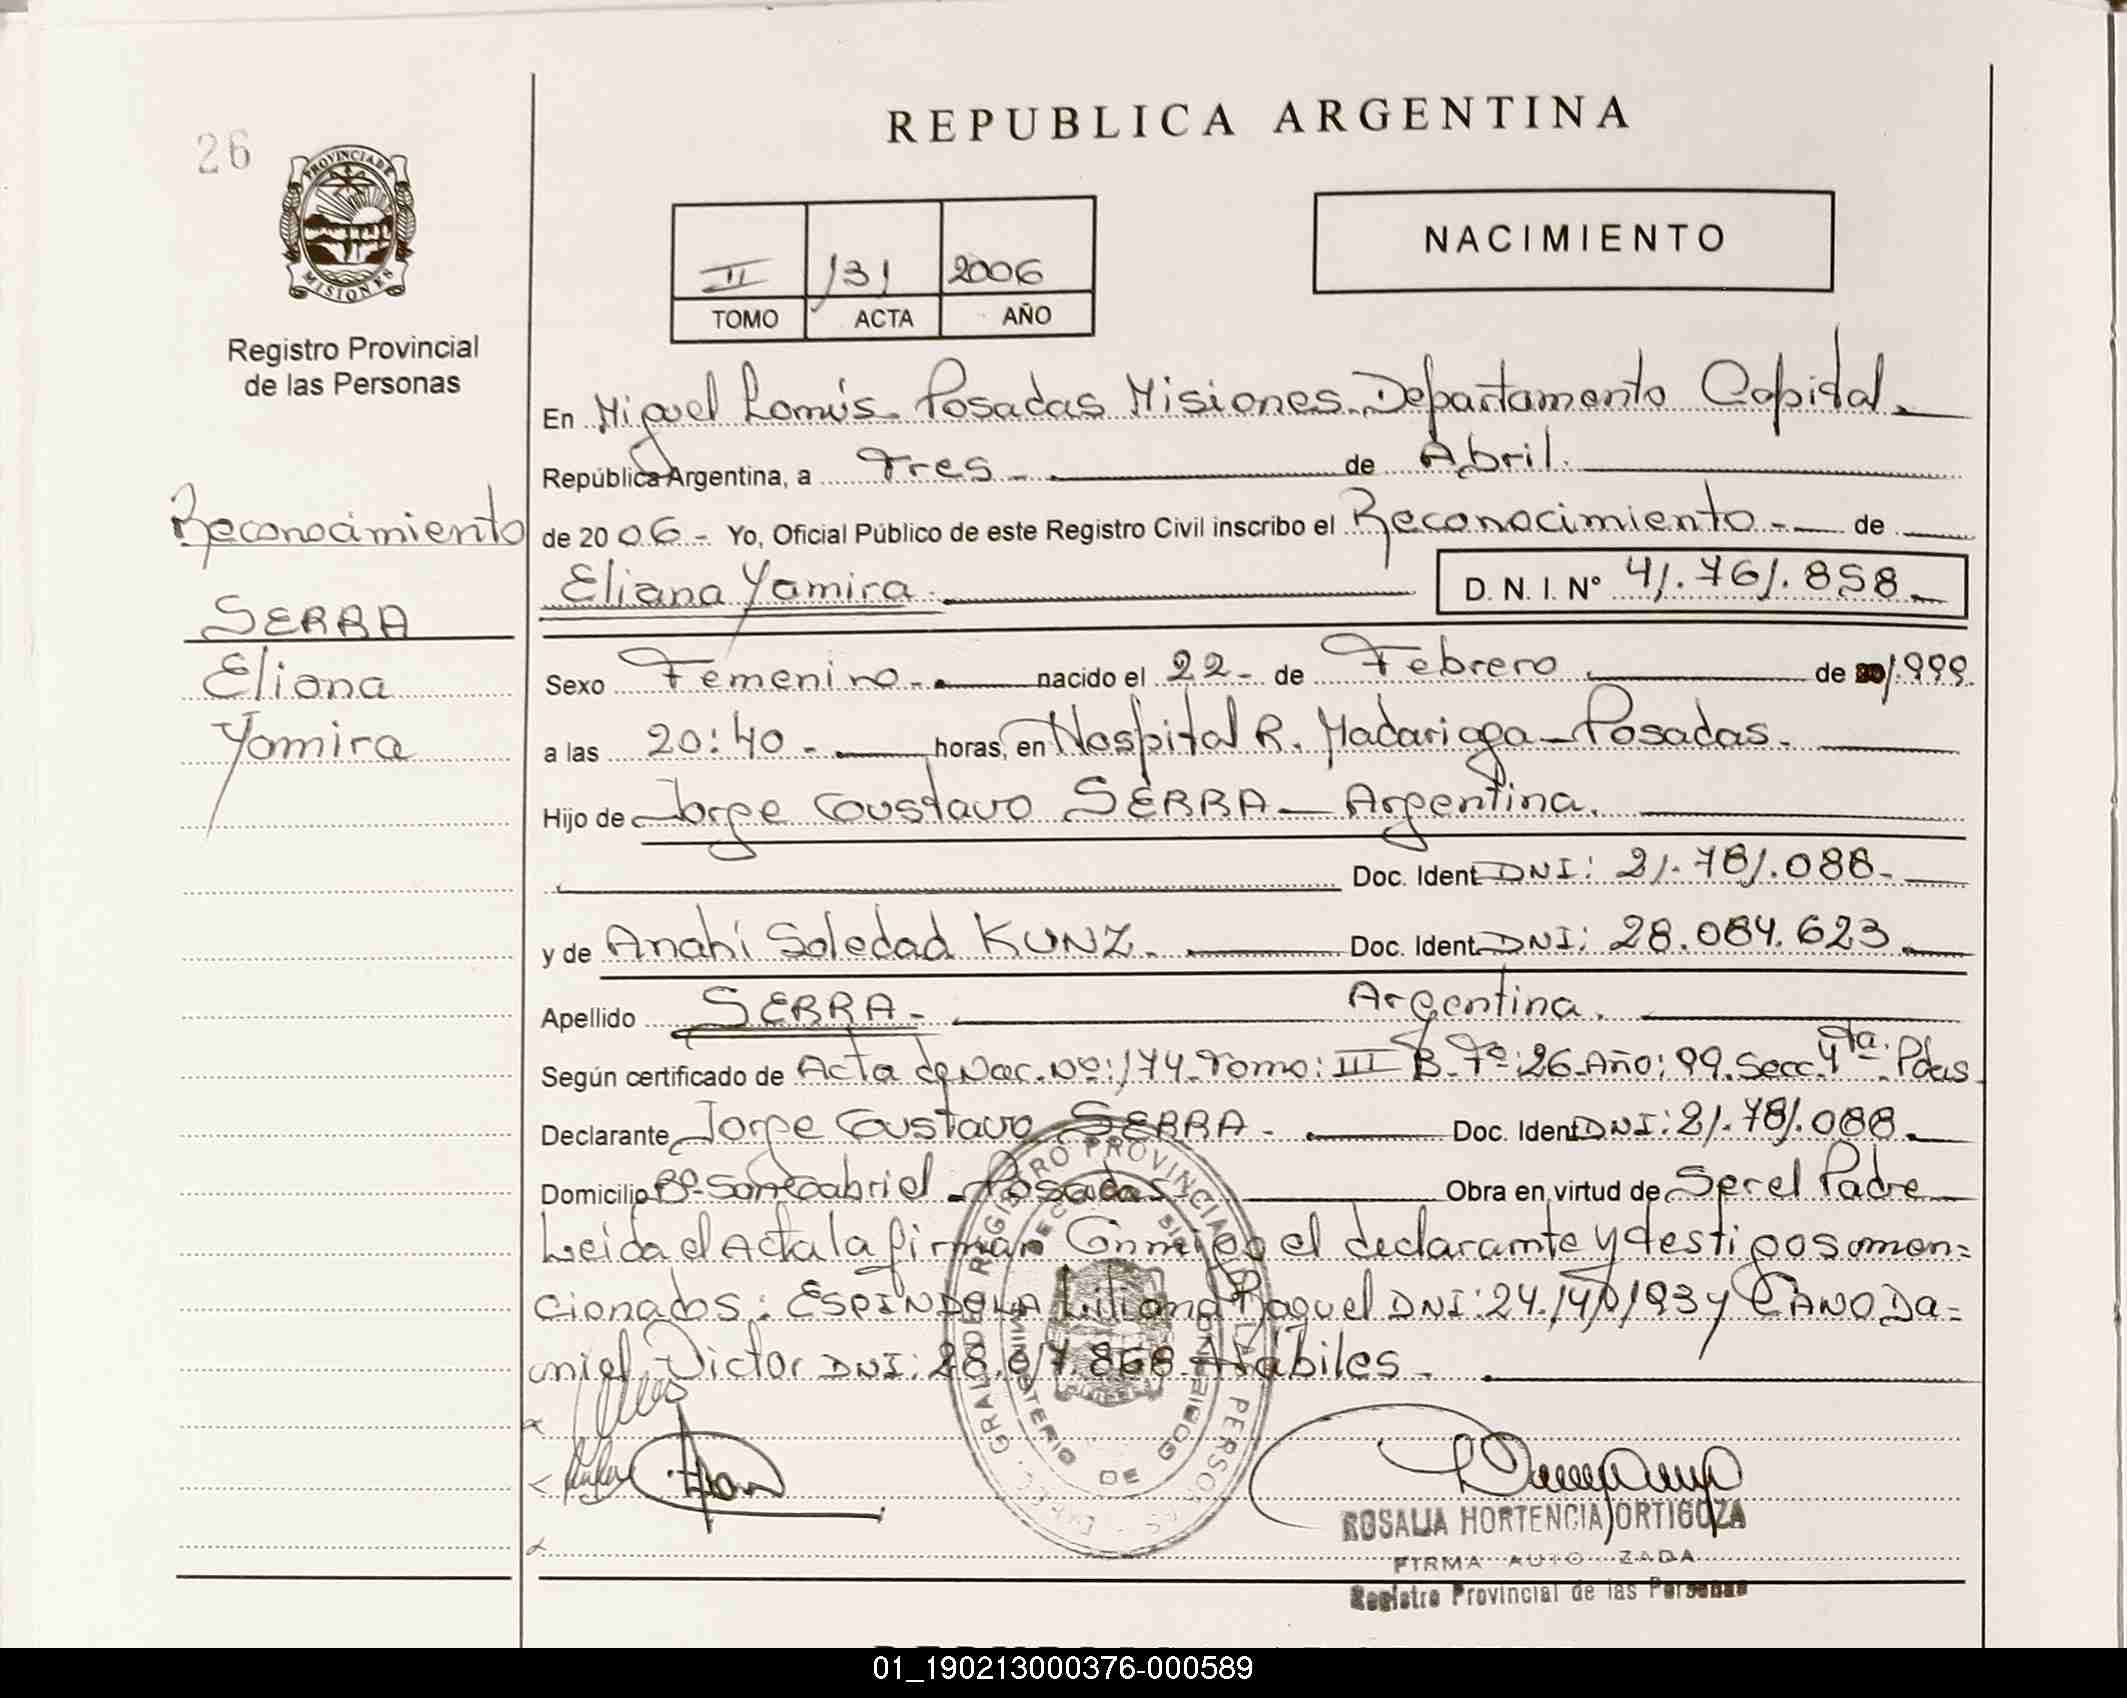 REPUBLICA ARGENTINA
26
PROVINCIA DE
MISIONES
Registro Provincial
de las Personas
II 131 2006
TOMO ACTA AÑO
NACIMIENTO
En Miguel Lanús. Posadas Misiones. Departamento Capital.
República Argentina, a Tres de Abril.
de 2006 - Yo, Oficial Público de este Registro Civil inscribo el Reconocimiento - de
Eliana Yamira.
D. N. I. Nº 41.761.858
Reconocimiento
SERRA
Eliana
Yamira
Sexo Femenino. nacido el 22 - de Febrero de 1999.
a las 20:40 - horas, en Hospital R. Madariaga - Posadas.
Hijo de Jorge Gustavo SERRA - Argentina.
Doc. Ident. DNI: 21.781.088.
y de Anahí Soledad KUNZ. Doc. Ident. DNI: 28.084.623
Apellido SERRA - Argentina.
Según certificado de Acta de Nac. Nº: 174. Tomo: III B. Fº: 26. Año: 99. Secc. 4ta. Pdas.
Declarante Jorge Gustavo SERRA - Doc. Ident. DNI: 21.781.088.
Domicilio Bº San Gabriel - Posadas. Obra en virtud de Ser el Padre
Leida el Acta la firman Conmigo el declarante y testigos men=
cionados: ESPINDOLA Liliana Raquel DNI: 24. y CANO Da=
niel Victor DNI: 28.017.868. Hábiles.
REGISTRO PROVINCIAL DE LAS PERSONAS
MINISTERIO DE GOBIERNO
ROSALIA HORTENCIA ORTIGOZA
FIRMA AUTORIZADA
Registro Provincial de las Personas
01_190213000376-000589